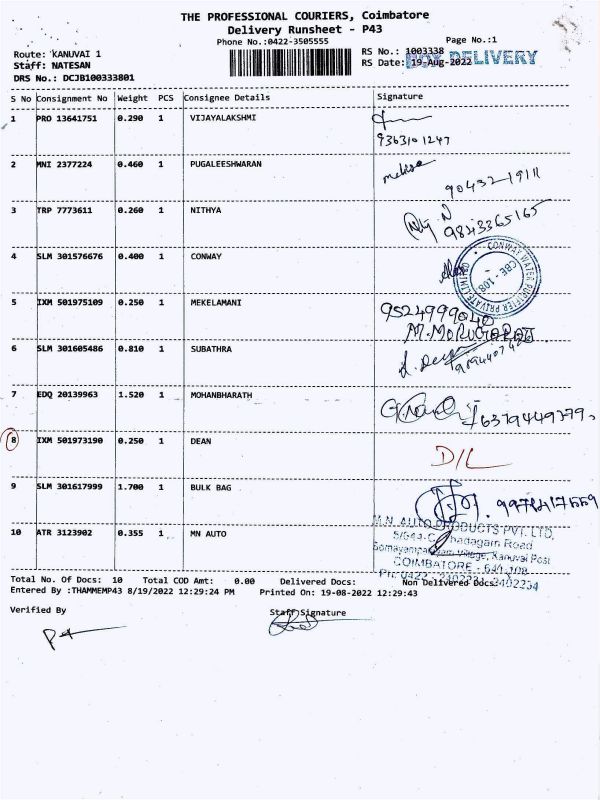 THE PROFESSIONAL COURIERS, Coimbatore
Delivery Runsheet - P43
Phone No.:0422-3505555
Page No.:1
Route: KANUVAI 1
RS No.: 1003338
Staff: NATESAN
RS Date: 19-Aug-2022
DELIVERY
DRS No.: DCJB100333801
S No Consignment No Weight PCS Consignee Details Signature
1 PRO 13641751 0.290 1 VIJAYALAKSHMI
9363101247
2 MNI 2377224 0.460 1 PUGALEESHWARAN
90432-19111
3 TRP 7773611 0.260 1 NITHYA
9843365165
4 SLM 301576676 0.400 1 CONWAY
CONWAY WATER PURIFIER PRIVATE LIMITED
CBE - 108
5 IXM 501975109 0.250 1 MEKELAMANI
9524999040
6 SLM 301605486 0.810 1 SUBATHRA
7 EDQ 20139963 1.520 1 MOHANBHARATH
6379449779
8 IXM 501973190 0.250 1 DEAN
D/L
9 SLM 301617999 1.700 1 BULK BAG
10 ATR 3123902 0.355 1 MN AUTO
M.N. AUTO PRODUCTS PVT. LTD.
Road
Village, Kanuvai Post
COIMBATORE - 641 108
Total No. Of Docs: 10 Total COD Amt: 0.00 Delivered Docs: Non Delivered Docs:
Entered By :THAMMEMP43 8/19/2022 12:29:24 PM Printed On: 19-08-2022 12:29:43
Verified By
Staff Signature